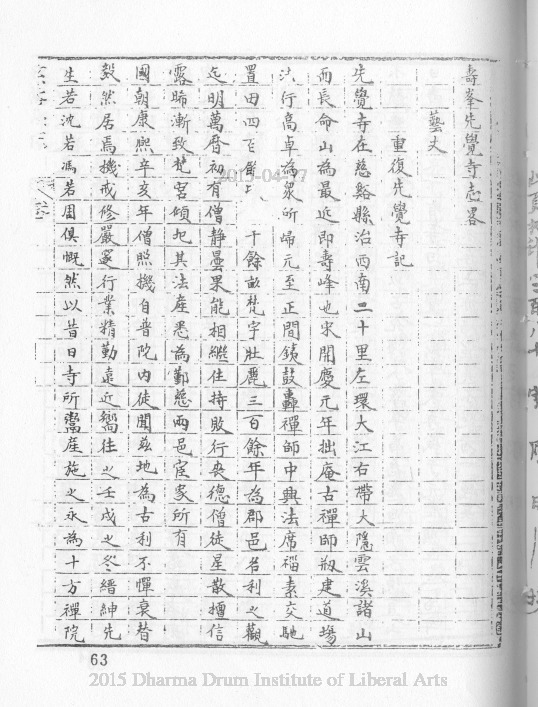 壽峯先覺寺志畧
藝文
重復先覺寺記
先覺寺在慈谿縣治西南二十里左環大江右帶大隱雲溪諸山
而長命山為最近即壽峰也宋開慶元年拙庵古禪師剏建道場
法行高卓為衆所歸元至正間鉄鼓轟禪師中興法席緇素交馳
置田四百 千餘畝梵宇壯麗三百餘年為郡邑名刹之觀
迄明萬曆初有僧静曇果能相繼住持敗行喪德僧徒星散擅信
露晞漸致梵宮傾圯其法産悉為鄞慈兩邑宦家所有
國朝康熙辛亥年僧照機自普陀内徙聞兹地為古刹不憚衰朁
毅然居焉機戒修嚴邃行業精勤遠近嚮往之壬戌之冬縉紳先
生若沈若馮若周俱慨然以昔日寺所鬻産施之永為十方禪院
63
2015-04-17
2015 Dharma Drum Institute of Liberal Arts